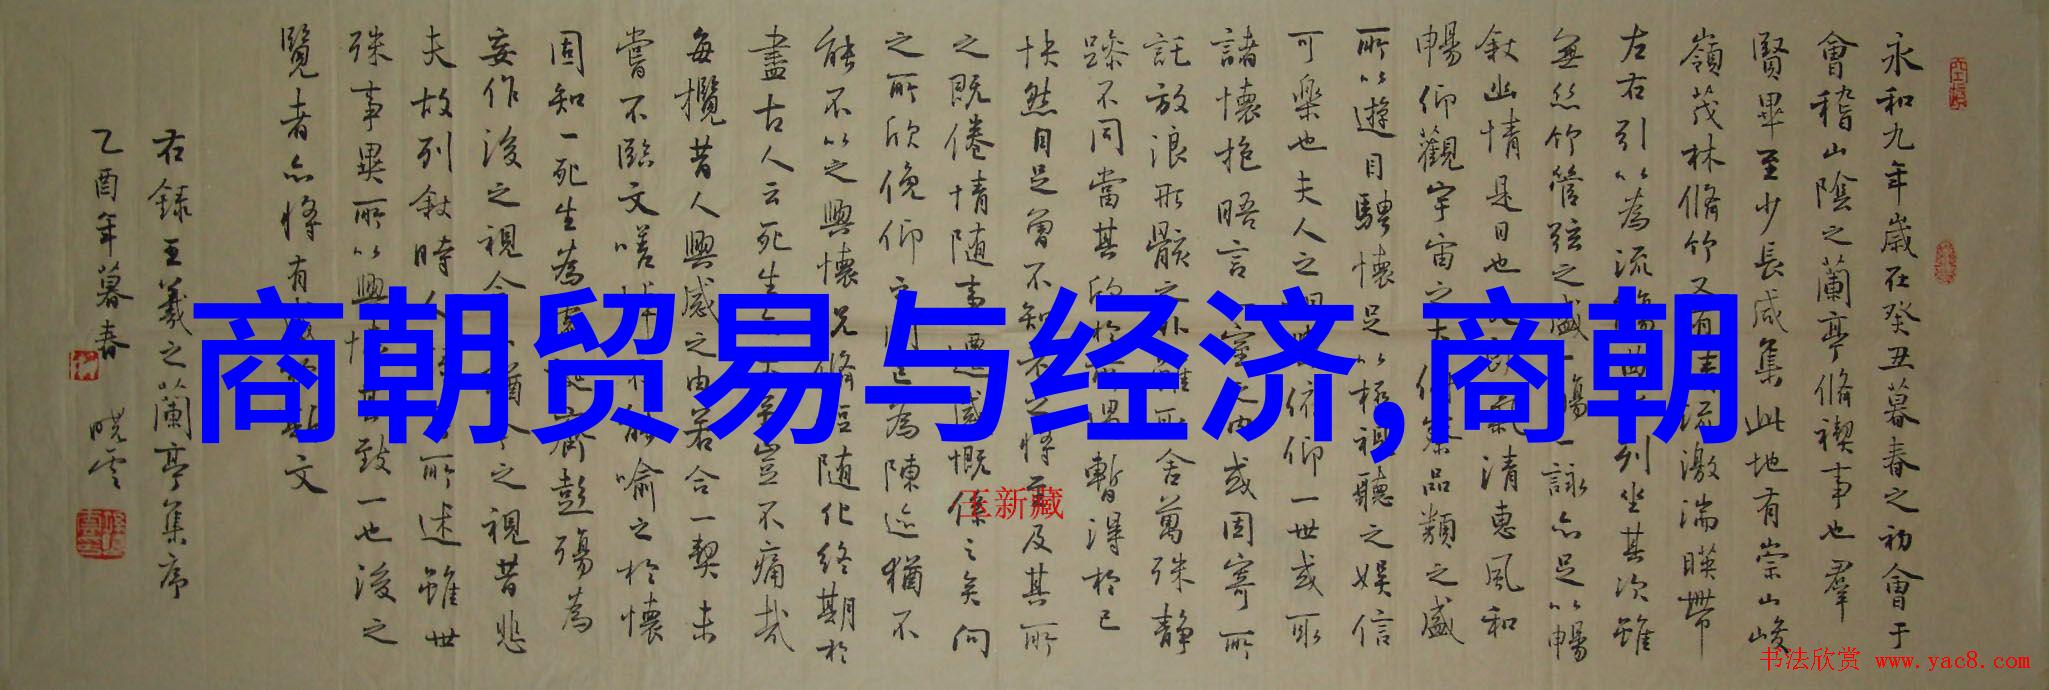 永和九年歲在癸丑暮春之初會于
會稽山陰之蘭亭脩禊事也羣
賢畢至少長咸集此地有崇山峻
嶺茂林脩竹又有清流激湍暎帶
左右引以為流觴曲水列坐其次雖
無絲竹管弦之盛一觴一詠亦足以暢
叙幽情是日也天朗氣清惠風和
暢仰觀宇宙之大俯察品類之盛
所以遊目騁懷足以極視聽之娛信
可樂也夫人之相與俯仰一世或取
諸懷抱晤言一室之內或因寄所
託放浪形骸之外雖取舍萬殊靜
躁不同當其欣於所遇暫得於己
怏然自足曾不知老之將至及其所
之既倦情随事遷感慨係之矣向
之所欣俛仰之間已為陳迹猶不
能不以之興懷况脩短随化終期於
盡古人云死生亦大矣豈不痛哉
每攬昔人興感之由若合一契未
嘗不臨文嗟悼不能喻之於懷
固知一死生為虛誕齊彭殤為
妄作後之視今亦猶今之視昔悲
夫故列叙時人錄其所述雖世
殊事異所以興懷其致一也後之
覽者亦將有感於斯文
右録王羲之蘭亭集序
乙酉年暮春 曉雲
商朝贸易与经济,商朝
王新藏
书法欣赏 www.yac8.com